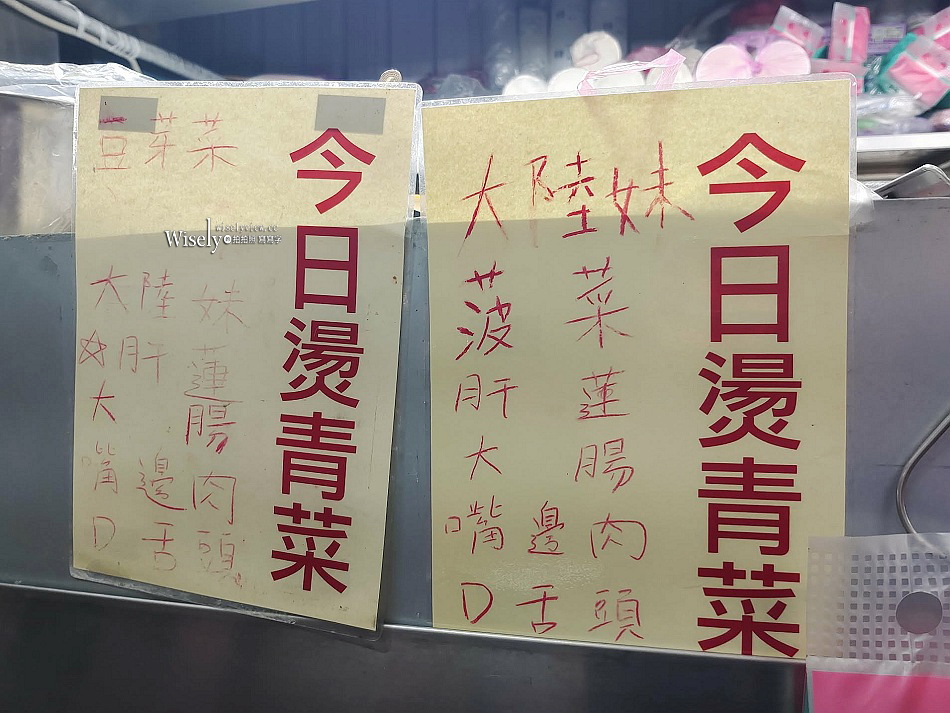 今日燙青菜
豆芽菜
大陸妹
☆肝蓮
大腸
嘴邊肉
D舌頭
Wisely 拍拍照寫寫字
今日燙青菜
大陸妹
菠菜
肝蓮
大腸
嘴邊肉
D舌頭